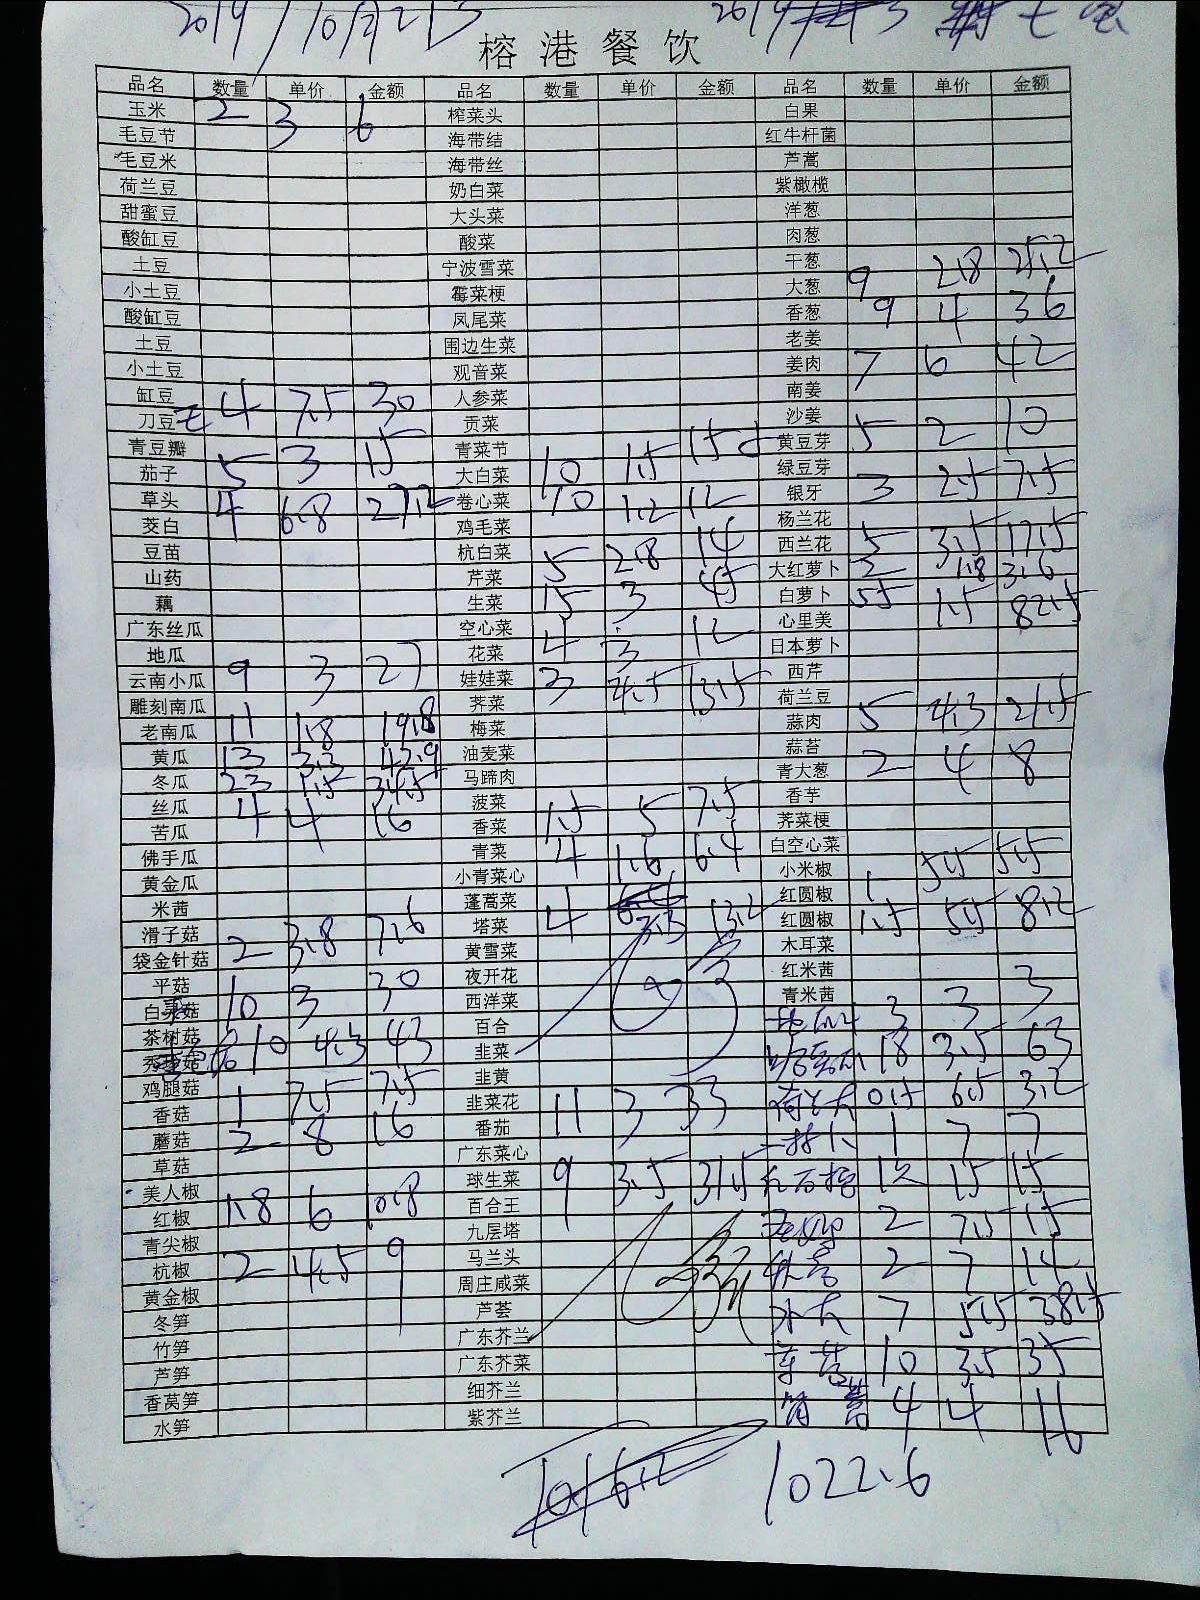 2019/10月2日3
榕港餐饮
品名 数量 单价 金额 品名 数量 单价 金额 品名 数量 单价 金额
玉米 2 3 6 榨菜头 白果
毛豆节 海带结 红牛杆菌
毛豆米 海带丝 芦蒿
荷兰豆 奶白菜 紫橄榄
甜蜜豆 大头菜 洋葱
酸缸豆 酸菜 肉葱
土豆 宁波雪菜 干葱
小土豆 霉菜梗 大葱 9 2.8 25.2
酸缸豆 凤尾菜 香葱 9 4 36
土豆 围边生菜 老姜
小土豆 观音菜 姜肉 7 6 42
缸豆 4 7.5 30 人参菜 南姜
刀豆 贡菜 沙姜
青豆瓣 青菜节 黄豆芽 5 2 10
茄子 5 3 15 大白菜 10 1.5 15 绿豆芽
草头 卷心菜 10 1.2 12 银牙 3 2.5 7.5
茭白 4 6.8 27.2 鸡毛菜 杨兰花
豆苗 杭白菜 5 2.8 14 西兰花 5 3.5 17.5
山药 芹菜 大红萝卜 2 1.8 3.6
藕 生菜 15 3 45 白萝卜 55 1.5 82.5
广东丝瓜 空心菜 4 3 12 心里美
地瓜 花菜 日本萝卜
云南小瓜 9 3 27 娃娃菜 3 4.5 13.5 西芹
雕刻南瓜 荠菜 荷兰豆
老南瓜 11 1.8 19.8 梅菜 蒜肉 5 4.3 21.5
黄瓜 13 3.3 42.9 油麦菜 蒜苔
冬瓜 23 1.5 34.5 马蹄肉 青大葱 2 4 8
丝瓜 4 4 16 菠菜 香芋
苦瓜 香菜 1.5 5 7.5 荠菜梗
佛手瓜 青菜 4 1.6 6.4 白空心菜
黄金瓜 小青菜心 小米椒 1 5.5 5.5
米茜 蓬蒿菜 红圆椒
滑子菇 塔菜 4 3.3 13.2 红圆椒 1.5 5.5 8.2
袋金针菇 2 3.8 7.6 黄雪菜 木耳菜
平菇 夜开花 红米茜
白灵菇 10 3 30 西洋菜 青米茜
茶树菇 百合 3 3 3
秀珍菇 10 4.3 43 韭菜 18 3.5 63
鸡腿菇 韭黄 0.5 6.5 3.2
香菇 1 7.5 7.5 韭菜花 11 3 33 1 7 7
蘑菇 2 8 16 番茄
草菇 广东菜心
美人椒 球生菜 9 3.5 31.5 15 15
红椒 1.8 6 10.8 百合王 2 7.5 15
青尖椒 九层塔
杭椒 2 4.5 9 马兰头 2 7 14
黄金椒 周庄咸菜
冬笋 芦荟 7 5.5 38.5
竹笋 广东芥兰
芦笋 广东芥菜 10 3.5 35
香莴笋 细芥兰
水笋 紫芥兰 4 4 16
1022.6